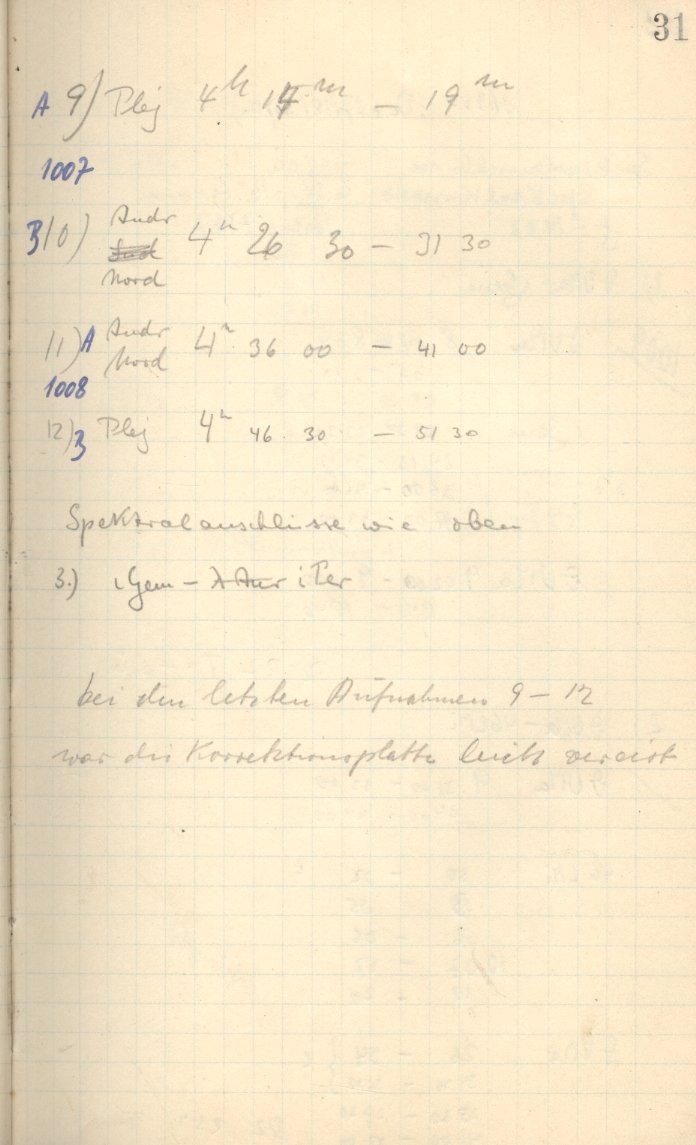 31
A 9) Plej 4h 14m – 19m
1007
B 10) Andr 4h 26 30 – 31 30
Nord
11) A Andr 4h 36 00 – 41 00
Nord
1008
12) B Plej 4h 46 30 – 51 30
Spektralanschlüsse wie oben
3.) ι Gem – Aur ι Per
bei den letzten Aufnahmen 9 – 12
war die Korrektionsplatte leicht vereist